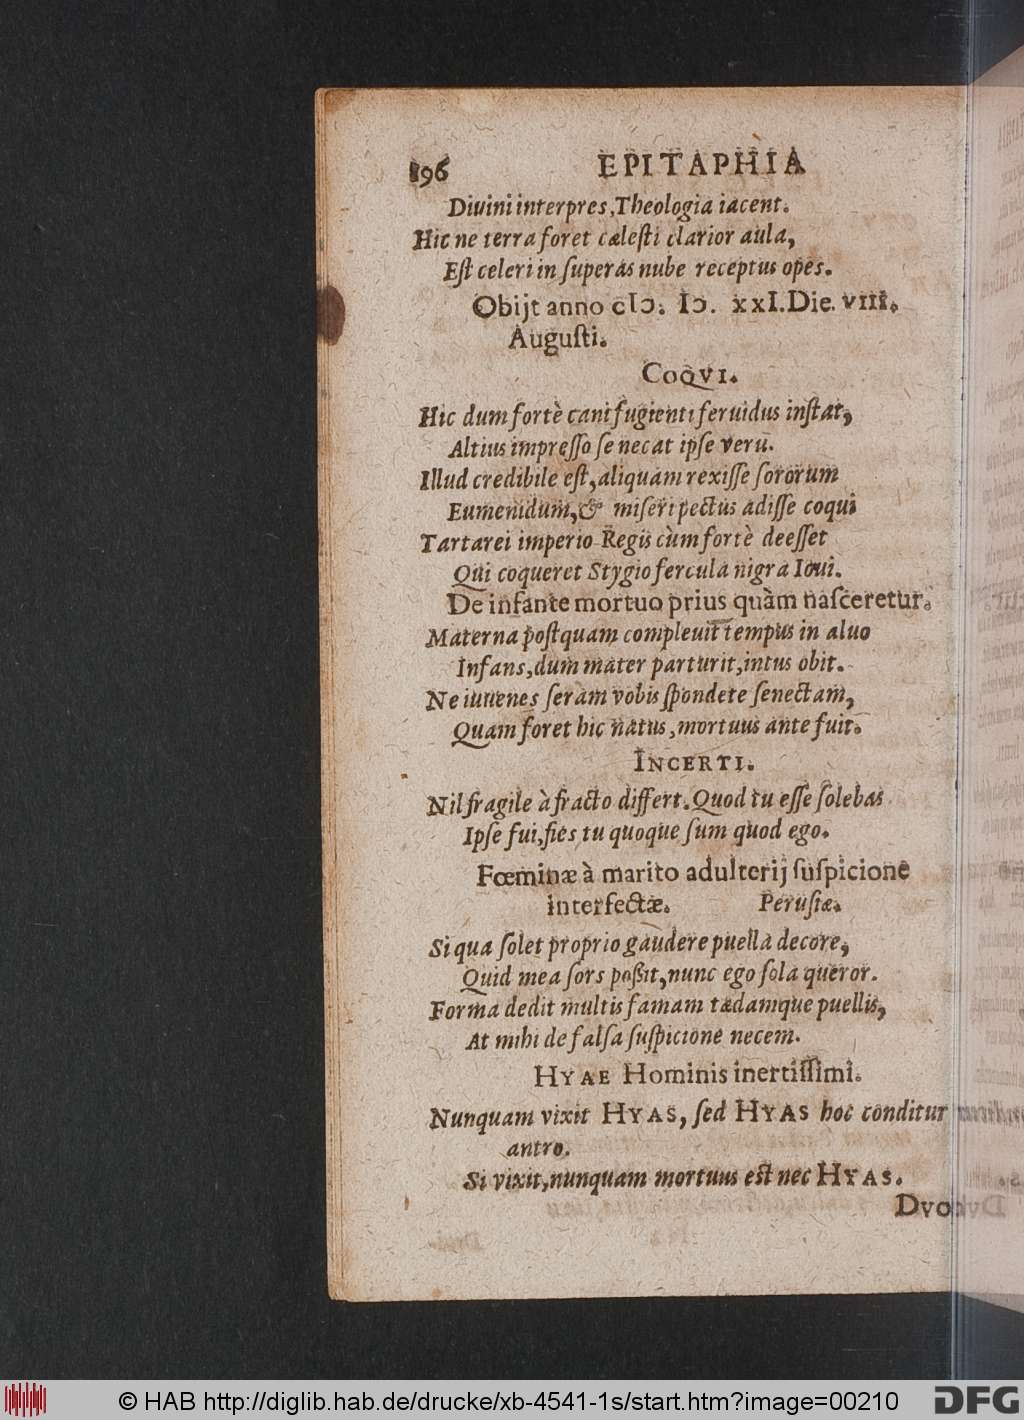 196 EPITAPHIA
Diuini interpres, Theologia iacent.
Hic ne terra foret cælesti clarior aula,
Est celeri in superas nube receptus opes.
Obijt anno cIↃ. IↃ. xxI. Die. VIII.
Augusti.
COQVI.
Hic dum fortè cani fugienti feruidus instat,
Altius impresso se necat ipse veru.
Illud credibile est, aliquam rexisse sororum
Eumenidum, & miseri pectus adisse coqui
Tartarei imperio Regis cùm fortè deesset
Qui coqueret Stygio fercula nigra Ioui.
De infante mortuo prius quàm nasceretur.
Materna postquam compleuit tempus in aluo
Infans, dum mater parturit, intus obit.
Ne iuuenes seram vobis spondete senectam,
Quam foret hic natus, mortuus ante fuit.
INCERTI.
Nil fragile à fracto differt. Quod tu esse solebas
Ipse fui, fies tu quoque sum quod ego.
Fœminæ à marito adulterij suspicione
interfectæ. Perusiæ.
Si qua solet proprio gaudere puella decore,
Quid mea sors poßit, nunc ego sola queror.
Forma dedit multis famam tædamque puellis,
At mihi de falsa suspicione necem.
HYAE Hominis inertissimi.
Nunquam vixit HYAS, sed HYAS hoc conditur
antro.
Si vixit, nunquam mortuus est nec HYAS.
© HAB http://diglib.hab.de/drucke/xb-4541-1s/start.htm?image=00210
DFG